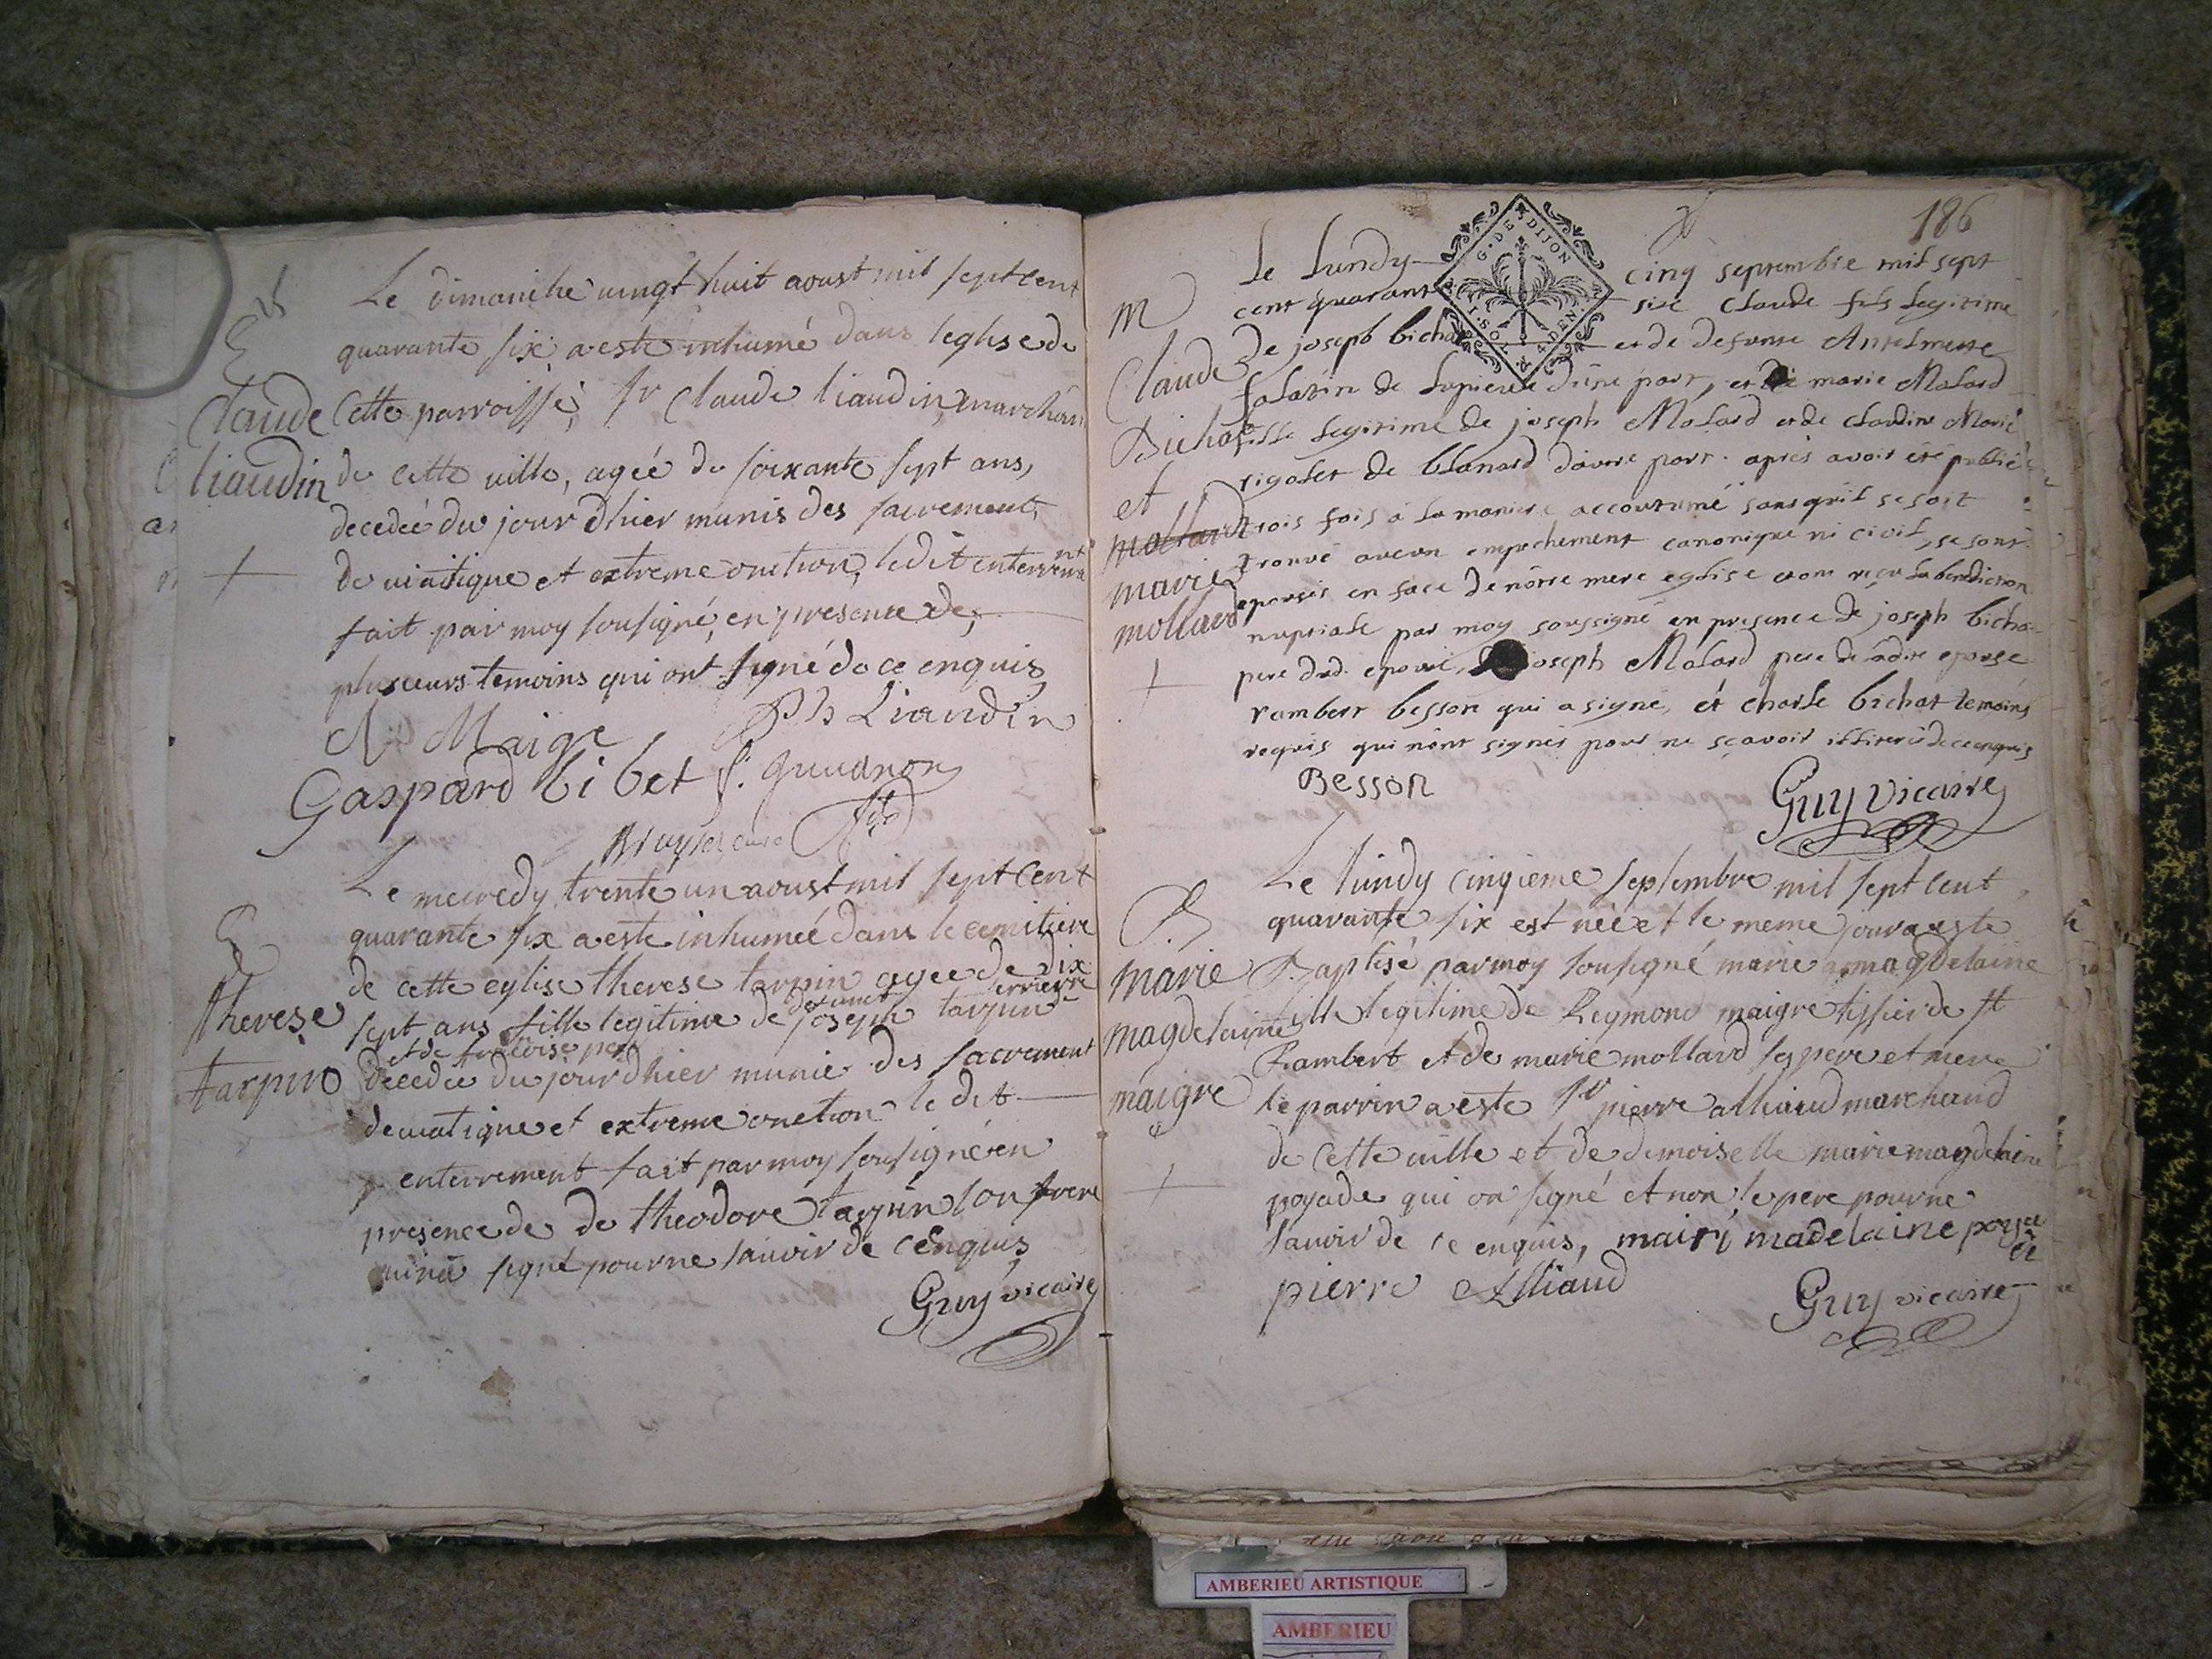 Le dimanche vingt huit aoust mil sept cent
quarante six a este inhumé dans leglise de
Claude cette parroisse, sr Claude liaudin, marchan
liaudin de cette ville, agée de soixante sept ans,
decedée du jour dhier munis des sacrement
de viatique et extreme onction, ledit enterrement
fait par moy sousigné, en presence de,
plusieurs temoins qui ont signé de ce enquis
Maige Ph Liaudin
Gaspard bibet
Le mecredy trente un aoust mil sept cent
quarante six a este inhumée dans le cemitiere
de cette eglise therese tarpin agee de dix
therese sept ans fille legitime de defunct joseph tarpin
et de
tarpin decedée du jour dhier munie des sacrement
de viatique et extreme onction le dit
enterrement fait par moy sousigné en
presence de de theodore tarpin son frere
qui na signé pour ne savoir de ce enquis
Guy vicaire
186
G. DE DIJON
Le Lundy cinq septembre mil sept
M cent quarante six Claude fils legitime
Claude de joseph bichat et de defunte Antelmette
falatin de d'une part, et de marie Molard
Bichat fille legitime de joseph Molard et de claudine Marie
et rigolet de blanard d'autre part. après avoir été publié
mollard trois fois à la maniere accoutumé sans qu'il se soit
marie trouvé aucun empechement canonique ni civil, se sont
mollard epousés en face de nôtre mere eglise et ont reçu la benediction
nuptiale par moy soussigné en presence de joseph bichat
pere dud. epoux, joseph Molard pere de ladite epouse
rambert besson qui a signé, et charle bichat temoins
requis qui n'ont signés pour ne sçavoir de ce enquis
Besson Guy vicaire
Le lundy cinqieme septembre mil sept cent
B quarante six est née et le meme jour a este
marie Baptisé par moy sousigné marie magdelaine
magdelaine fille legitime de Regmond maigre tissier de st
Rambert et de marie mollard ses pere et mere
maigre le parrin a este sr pierre alliaud marchand
de cette ville et de demoiselle marie magdelaine
poyade qui on signé et non le pere pour ne
savoir de ce enquis, mairi madelaine poyade
pierre Alliaud Guy vicaire
AMBERIEU ARTISTIQUE
AMBERIEU